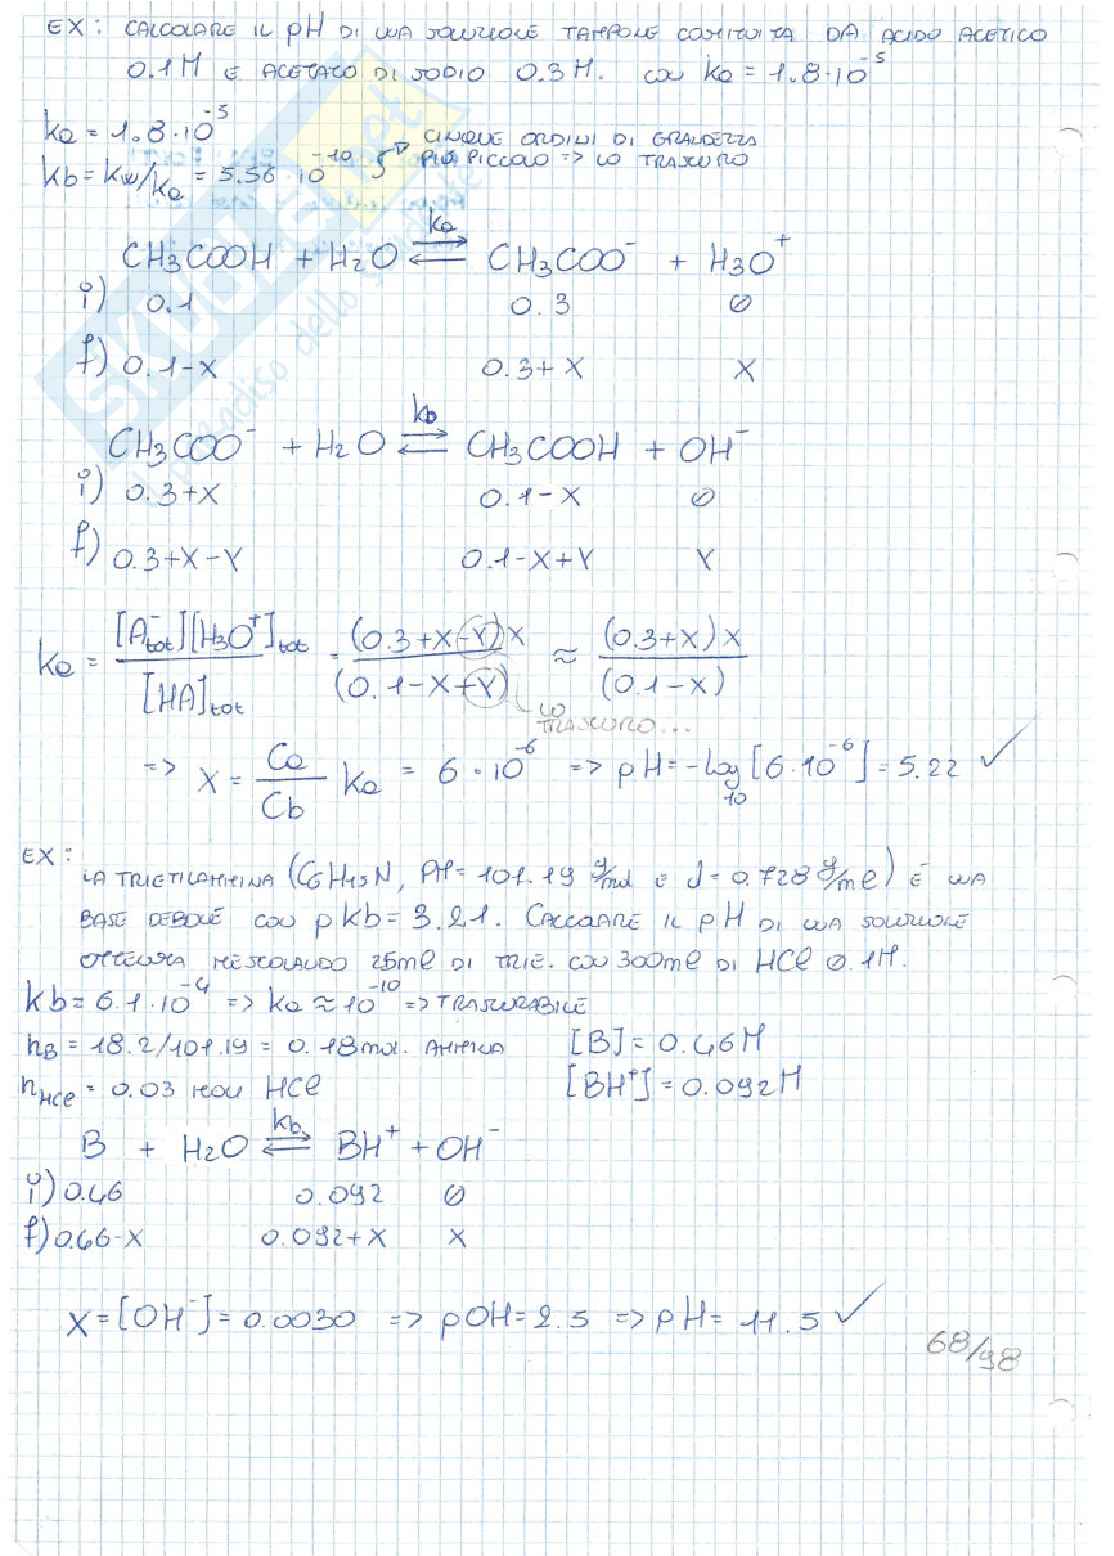 EX: CALCOLARE IL pH DI UNA SOLUZIONE TAMPONE COSTITUITA DA ACIDO ACETICO
0.1M E ACETATO DI SODIO 0.3M. CON Ka = 1.8·10⁻⁵
Ka = 1.8·10⁻⁵
CINQUE ORDINI DI GRANDEZZA
Kb = Kw/Ka = 5.56·10⁻¹⁰ PIÙ PICCOLO => LO TRASCURO
Ka
CH3COOH + H2O ⇌ CH3COO⁻ + H3O⁺
i) 0.1 0.3 0
f) 0.1-X 0.3+X X
Kb
CH3COO⁻ + H2O ⇌ CH3COOH + OH⁻
i) 0.3+X 0.1-X 0
f) 0.3+X-Y 0.1-X+Y Y
Ka = [A⁻tot][H3O⁺]tot / [HA]tot = (0.3+X-Y)X / (0.1-X+Y) ≈ (0.3+X)X / (0.1-X)
LO TRASCURO...
=> X = Ca/Cb Ka = 6·10⁻⁶ => pH = -Log10[6·10⁻⁶] = 5.22 ✓
EX:
LA TRIETILAMMINA (C6H15N, PM = 101.19 g/mol E d = 0.728 g/ml) È UNA
BASE DEBOLE CON pKb = 3.21. CALCOLARE IL pH DI UNA SOLUZIONE
OTTENUTA MESCOLANDO 25ml DI TRIE. CON 300ml DI HCl 0.1M.
Kb = 6.1·10⁻⁴ => Ka ≈ 10⁻¹⁰ => TRASCURABILE
nB = 18.2/101.19 = 0.18mol. AMMINA [B] = 0.46M
nHCl = 0.03 MOLI HCl [BH⁺] = 0.092M
Kb
B + H2O ⇌ BH⁺ + OH⁻
i) 0.46 0.092 0
f) 0.66-X 0.092+X X
X = [OH⁻] = 0.0030 => pOH = 2.5 => pH = 11.5 ✓
68/98
SKUOLA.net
il paradiso dello studente